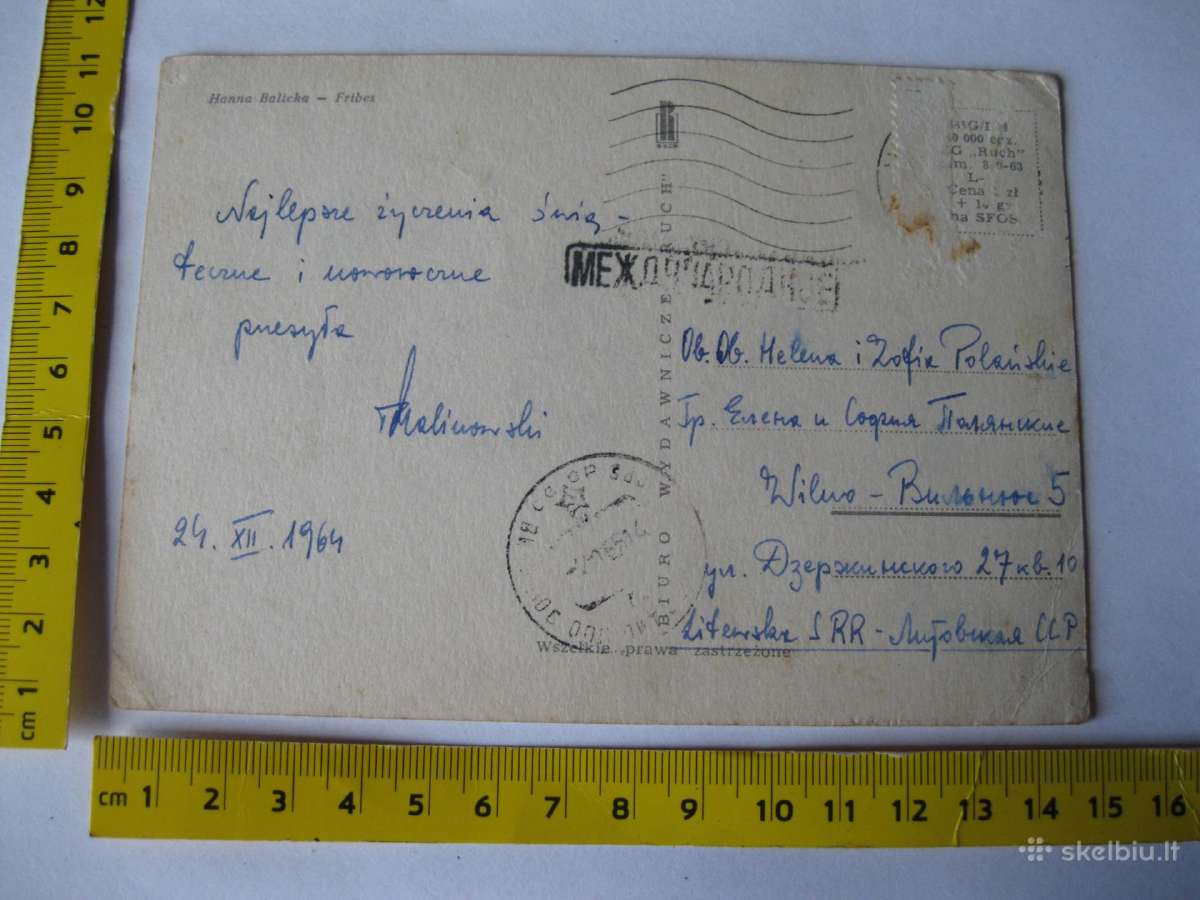 Hanna Balicka – Fribes
Najlepsze życzenia świą-
teczne i noworoczne
przesyła
Malinowski
24. XII. 1964
МЕЖДУНАРОДНОЕ
RUCH
"Ruch"
8-9-63
Cena zł
SFOS
BIURO WYDAWNICZE „RUCH"
Ob. Ob. Helena i Zofia Polańskie
Гр. Елена и София Полянские
Wilno – Вильнюс 5
ул. Дзержинского 27 кв. 10
Litewska SRR – Литовская ССР
Wszelkie prawa zastrzeżone
12
11
10
9
8
7
6
5
4
3
2
1
cm
cm 1 2 3 4 5 6 7 8 9 10 11 12 13 14 15 16
skelbiu.lt